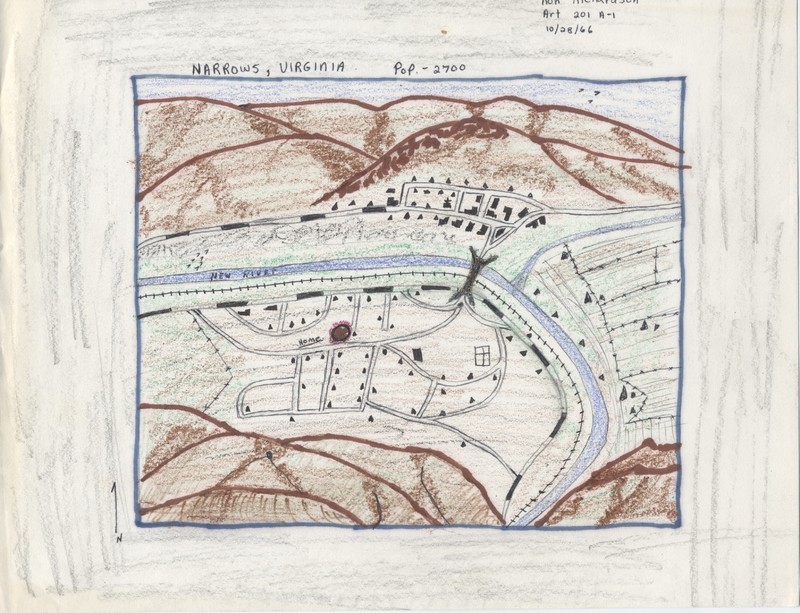 Ron Richardson
Art 201 A-1
10/28/66
NARROWS, VIRGINIA Pop. - 2700
NEW RIVER
HOME
N